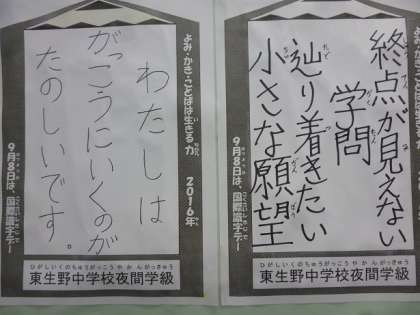 よみ・かき・ことばは生きる力
2016年
わたしは
がっこうにいくのが
たのしいです。
9月8日は、国際識字デー
ひがしいくのちゅうがっこうやかんがっきゅう
東生野中学校夜間学級
2016年
終点が見えない
学問
辿り着きたい
小さな願望
9月8日は、国際識字デー
ひがしいくのちゅうがっこうやかんがっきゅう
東生野中学校夜間学級